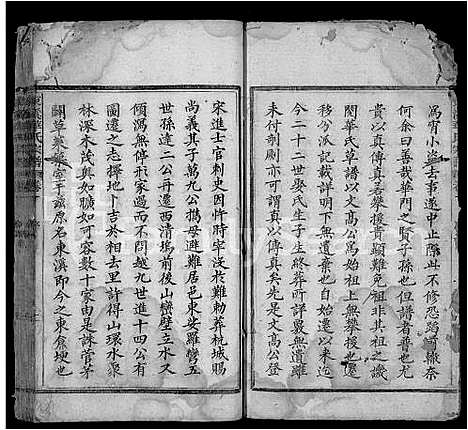 為胥小無去事遂中止際此不修恐蹈前轍奈
何余曰善哉華門之賢子孫也但譜者普也尤
貴以真傳真若攀援貴顯難免祖非其祖之譏
閱華氏草譜以文高公為始祖上無攀援也以來迄
移分派記載詳明下無遺棄也自始祖以來迄
今二十二世娶氏生子生終葬所詳具無遺雖
未付剞劂亦可謂傳真矣先是文高公登
宋進士官刺史因忤時宰沒於難勅葬杭城賜
尚義其子萬九公擕母避難居邑東婁羅巒五
世孫達二公再遷西清塢前後山巒壁立水又
傾瀉無停形家過而不問越九世進十四公有
圖遷之志擇地卜吉於相去里許得山環水聚
林深木茂奥如曠如可容數十家由是誅菅茅
闢草萊築室于兹原名東溪即今之東食埂也